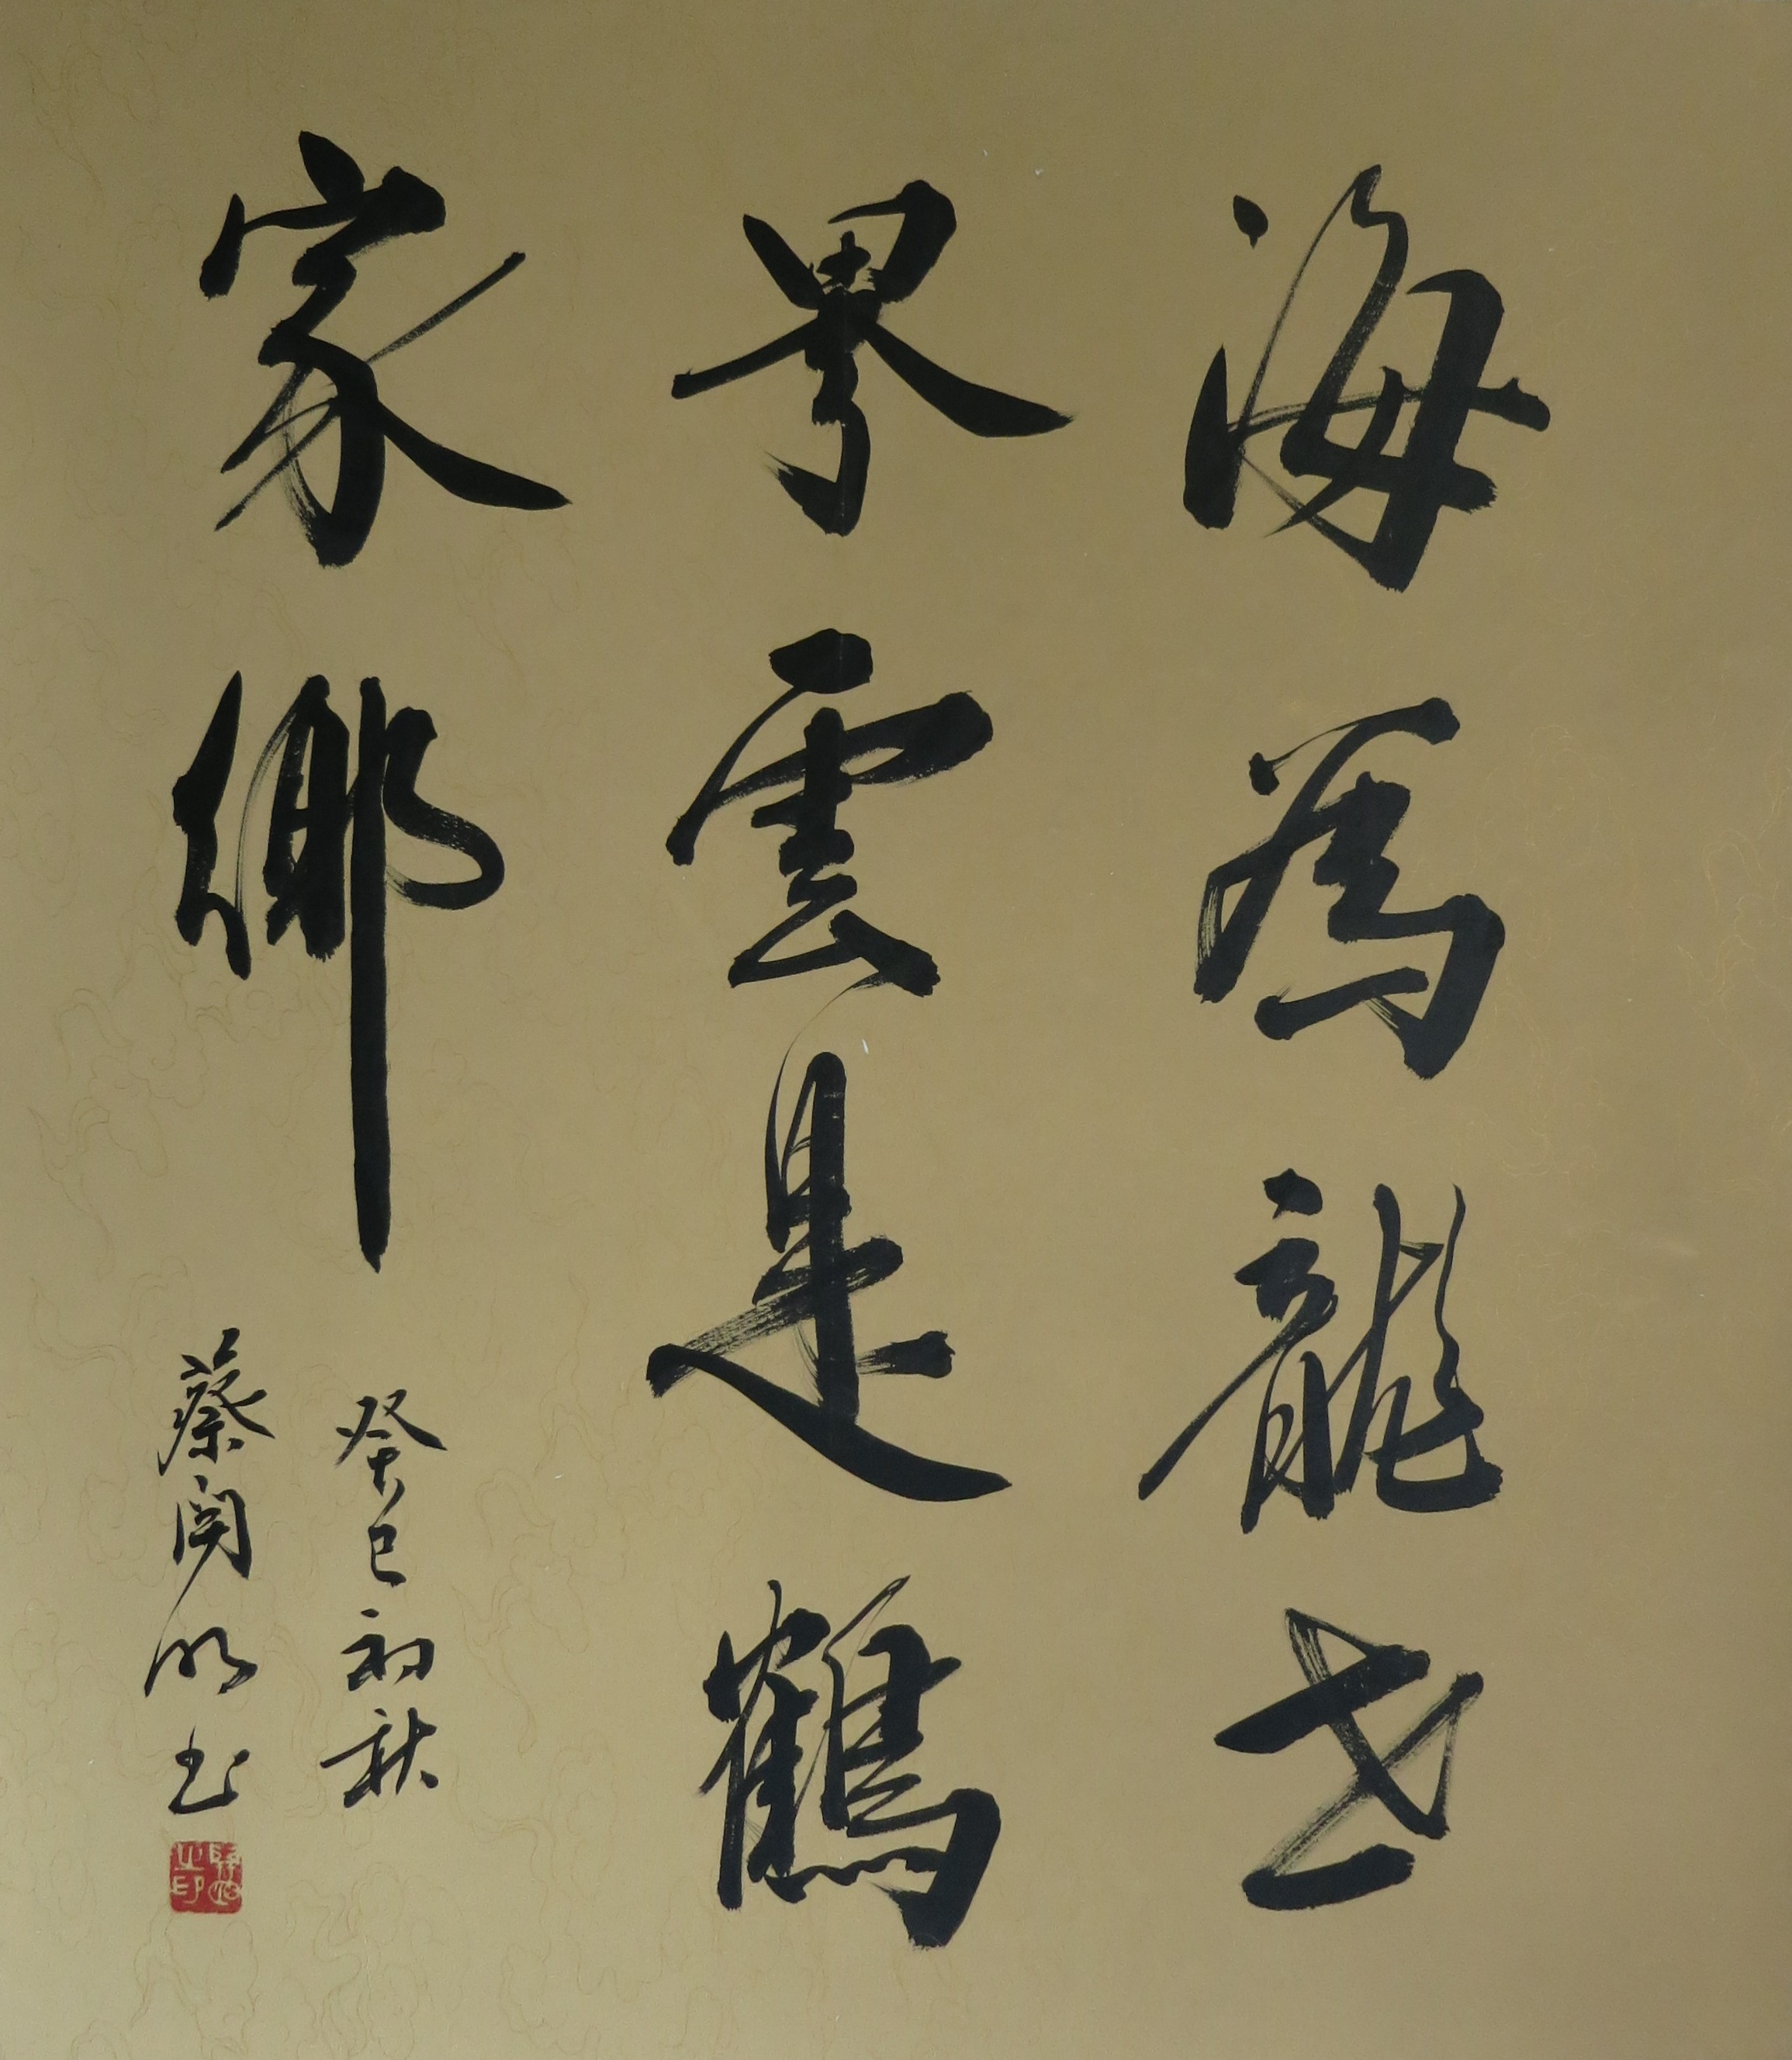 海為龍世
界雲是鶴
家鄉
癸巳初秋
蔡開明书